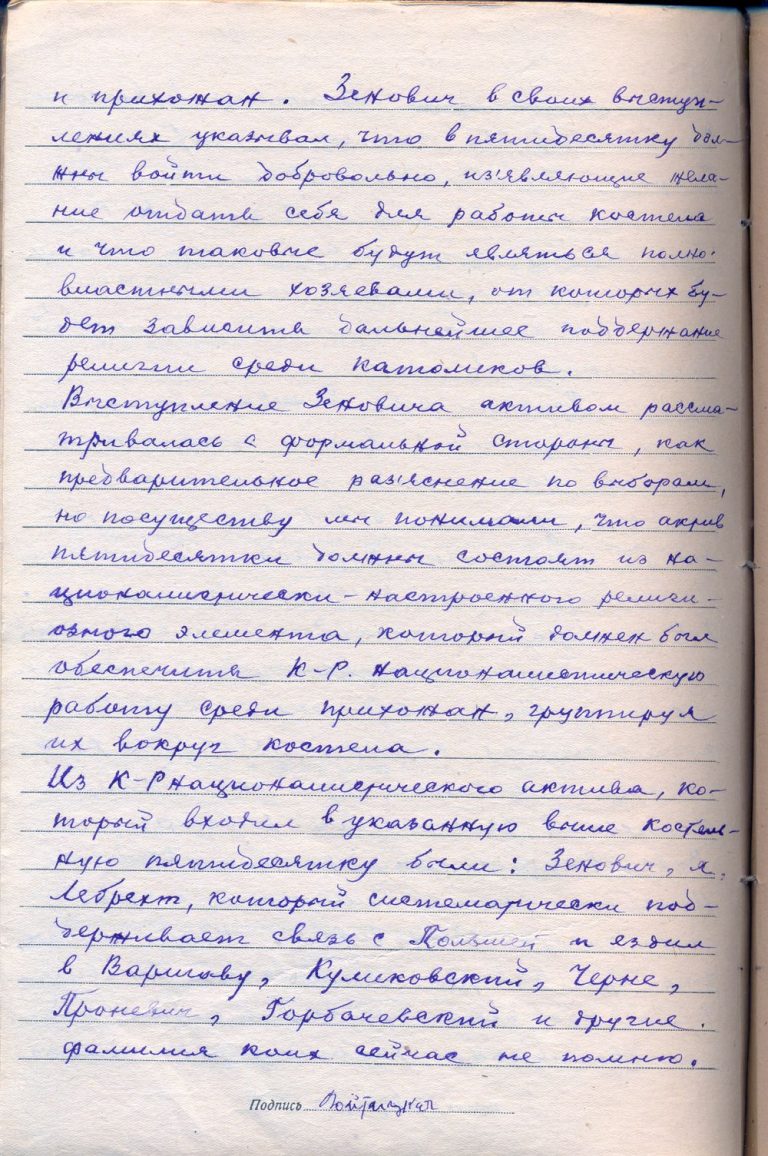 и прихожан. Зенович в своих выступ-
лениях указывал, что в пятидесятку дол-
жны войти добровольно, из'являющие жела-
ние отдать себя для работы костела
и что таковые будут являться полно-
властными хозяевами, от которых бу-
дет зависить дальнейшее поддержание
религии среди католиков.
Выступление Зеновича активом рассма-
тривалась с формальной стороны, как
предварительное раз'яснение по выборам,
но посуществу мы понимали, что актив
пятидесятки должны состоят из на-
ционалистически-настроенного религи-
озного элемента, который должен был
обеспечить К-Р. националистическую
работу среди прихожан, группируя
их вокруг костела.
Из К-Р националистического актива, ко-
торый входил в указанную выше костель-
ную пятидесятку были: Зенович, я,
Лебрехт, который систематически под-
держивает связь с Польшей и ездил
в Варшаву, Куликовский, Черне,
Проневич, Горбачевский и другие.
фамилия коих сейчас не помню.
Подпись